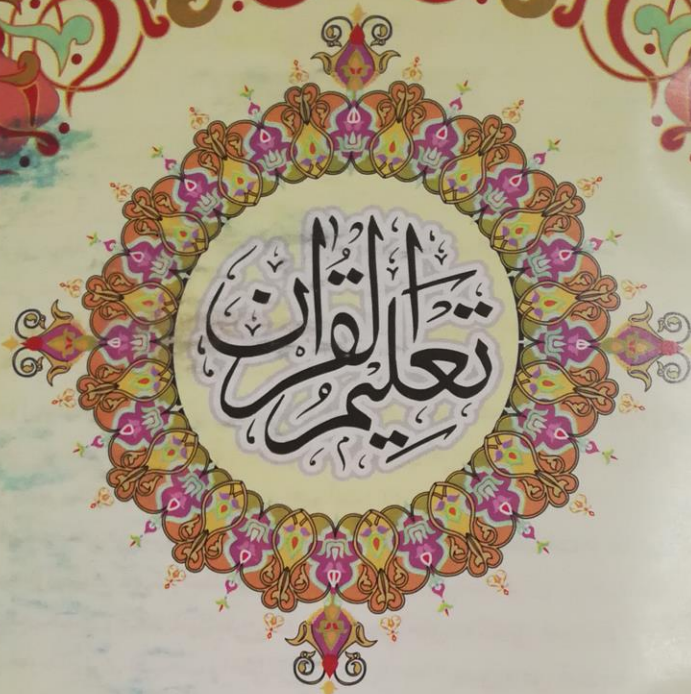 تعلیم القرآن